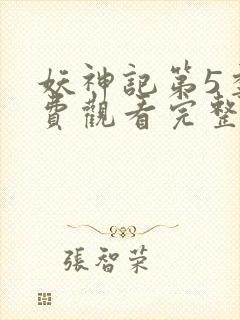 妖神記第5季
費觀看完整
張智荣